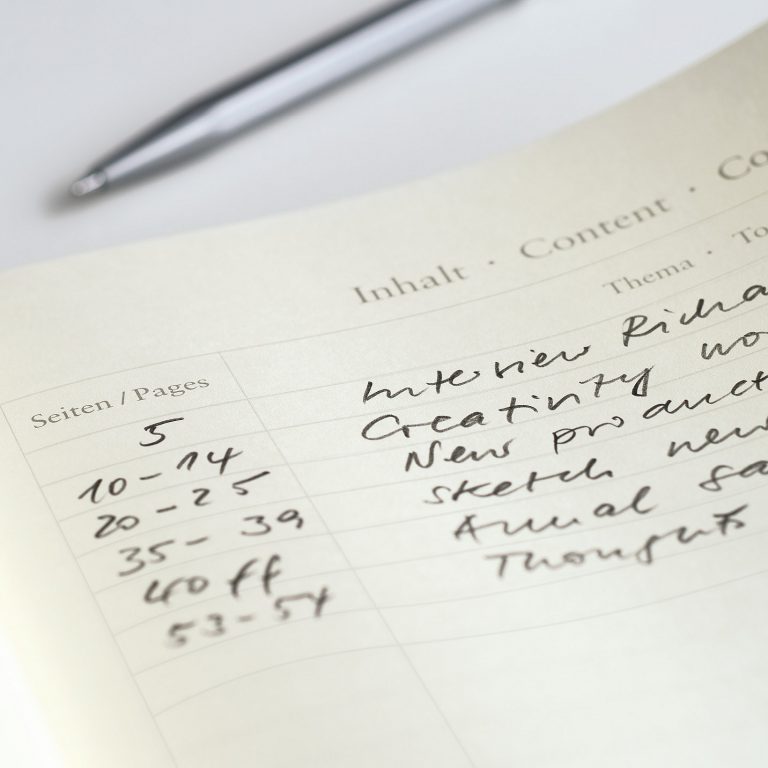 Inhalt · Content ·
Thema ·
Seiten / Pages
5 Interview
10 - 14 Creativity
20 - 25 New product
35 - 39 sketch new
40 ff Annual
53 - 54 Thoughts